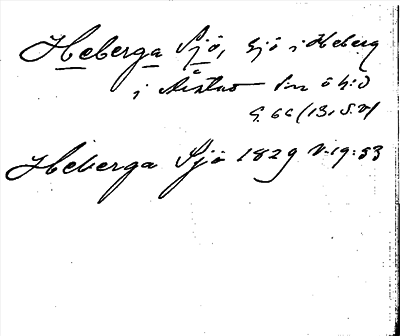 Heberga Sjö, sjö i Heberg
i Årstad sn o hd
Heberga Sjö 1829 V:19:53